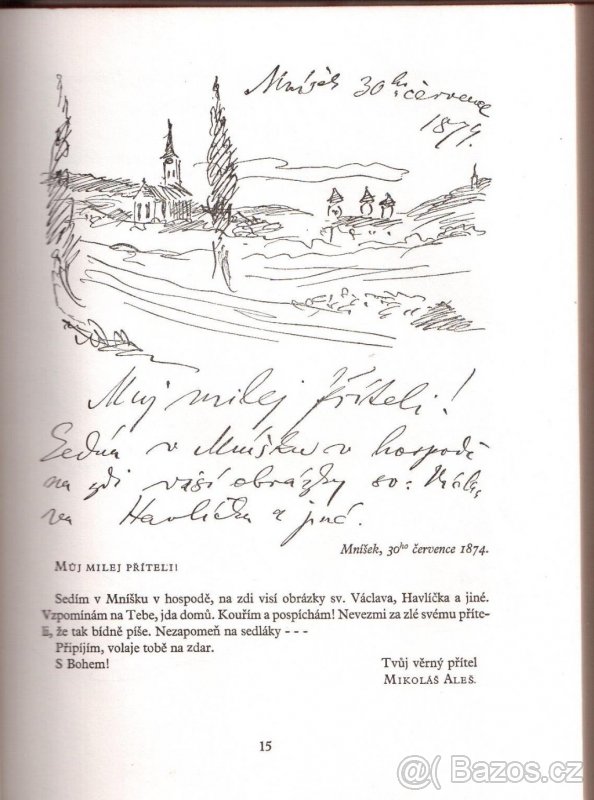 Mníšek 30ho července
1874.
Muj milej příteli!
Sedím v Mníšku v hospodě
na zdi visí obrázky sv. Václa
va Havlíčka a jiné.
Mníšek, 30ho července 1874.
MŮJ MILEJ PŘÍTELI!
Sedím v Mníšku v hospodě, na zdi visí obrázky sv. Václava, Havlíčka a jiné.
Vzpomínám na Tebe, jda domů. Kouřím a pospíchám! Nevezmi za zlé svému příte-
li, že tak bídně píše. Nezapomeň na sedláky - - -
Připíjím, volaje tobě na zdar.
S Bohem! Tvůj věrný přítel
MIKOLÁŠ ALEŠ.
15
@ Bazos.cz